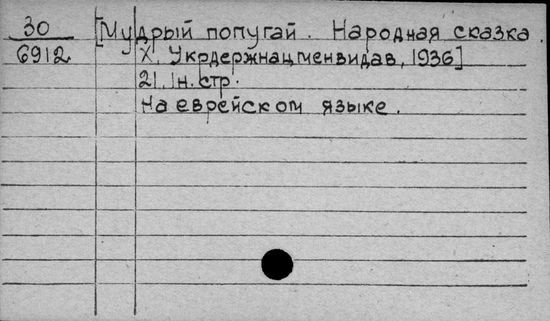 30 [Мудрый попугай. Народная сказка.
6912 Х, Укрдержнацменвидав, 1936]
21, Iн. стр.
На еврейском языке.